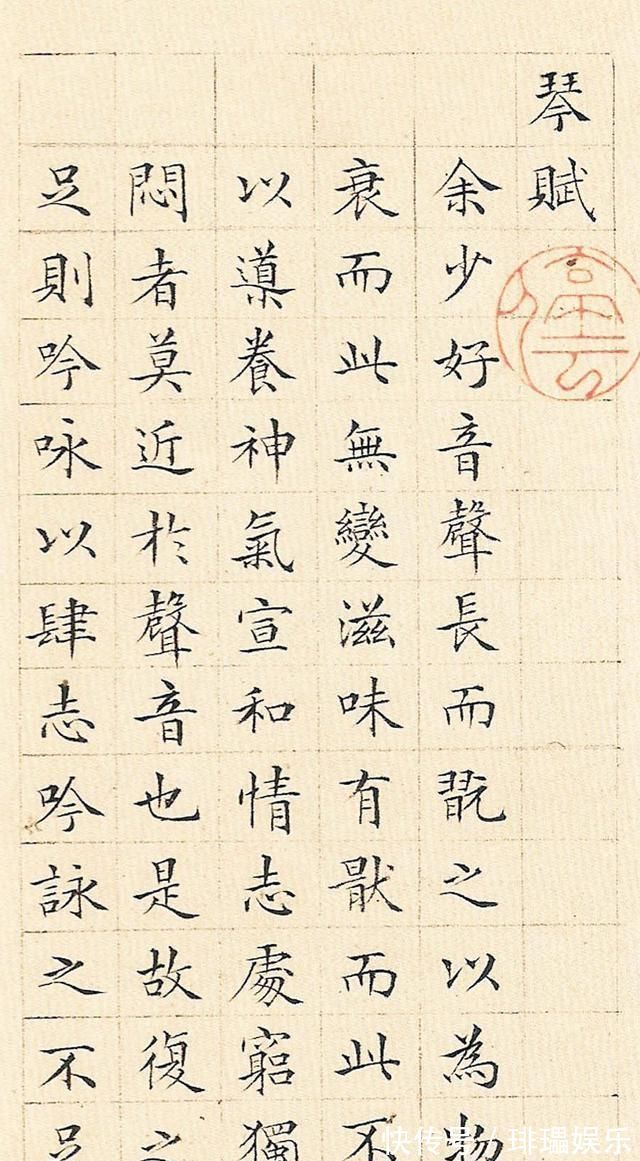 琴賦
余少好音聲長而翫之以為物
衰而此無變滋味有猒而此不
以導養神氣宣和情志處窮獨
悶者莫近於聲音也是故復之
足則吟咏以肆志吟詠之不足
快传号/琲瓃娱乐